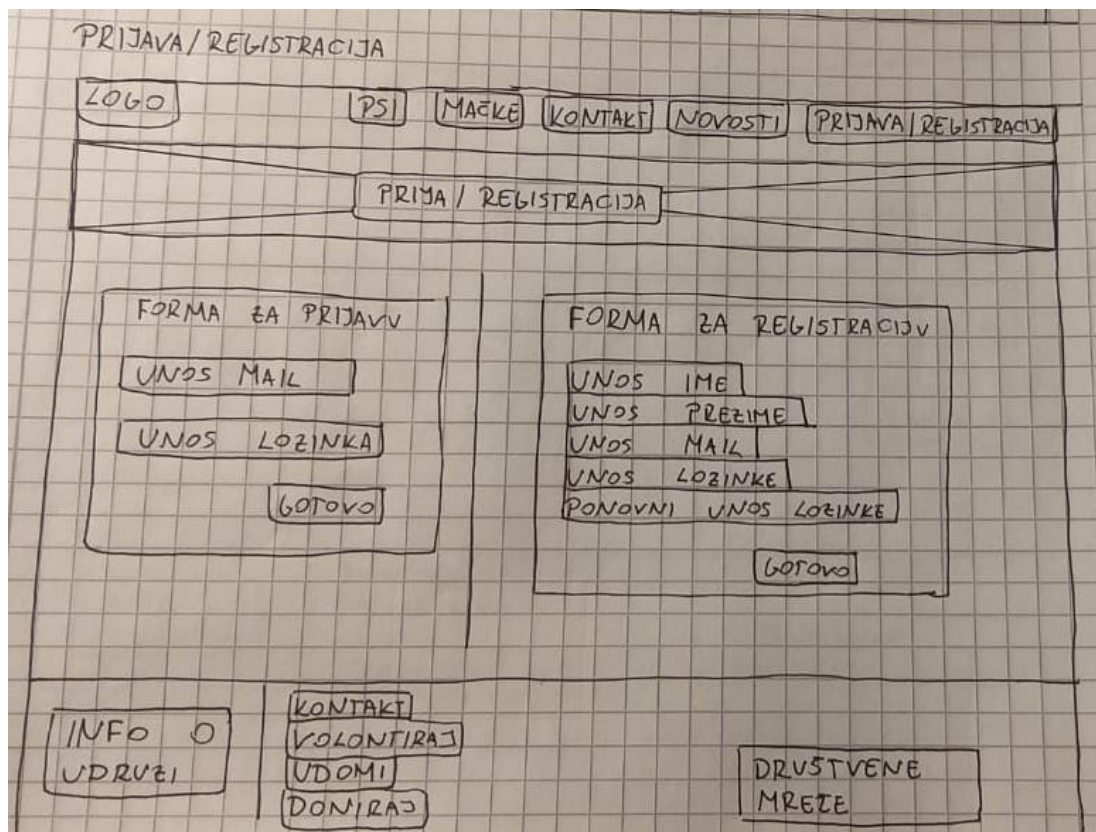 PRIJAVA/REGISTRACIJA
LOGO PSI MAČKE KONTAKT NOVOSTI PRIJAVA/REGISTRACIJA
PRIJA/REGISTRACIJA
FORMA ZA PRIJAVU
UNOS MAIL
UNOS LOZINKA
GOTOVO
FORMA ZA REGISTRACIJU
UNOS IME
UNOS PREZIME
UNOS MAIL
UNOS LOZINKE
PONOVNI UNOS LOZINKE
GOTOVO
INFO O
UDRUZI
KONTAKT
VOLONTIRAJ
UDOMI
DONIRAJ
DRUŠTVENE
MREŽE